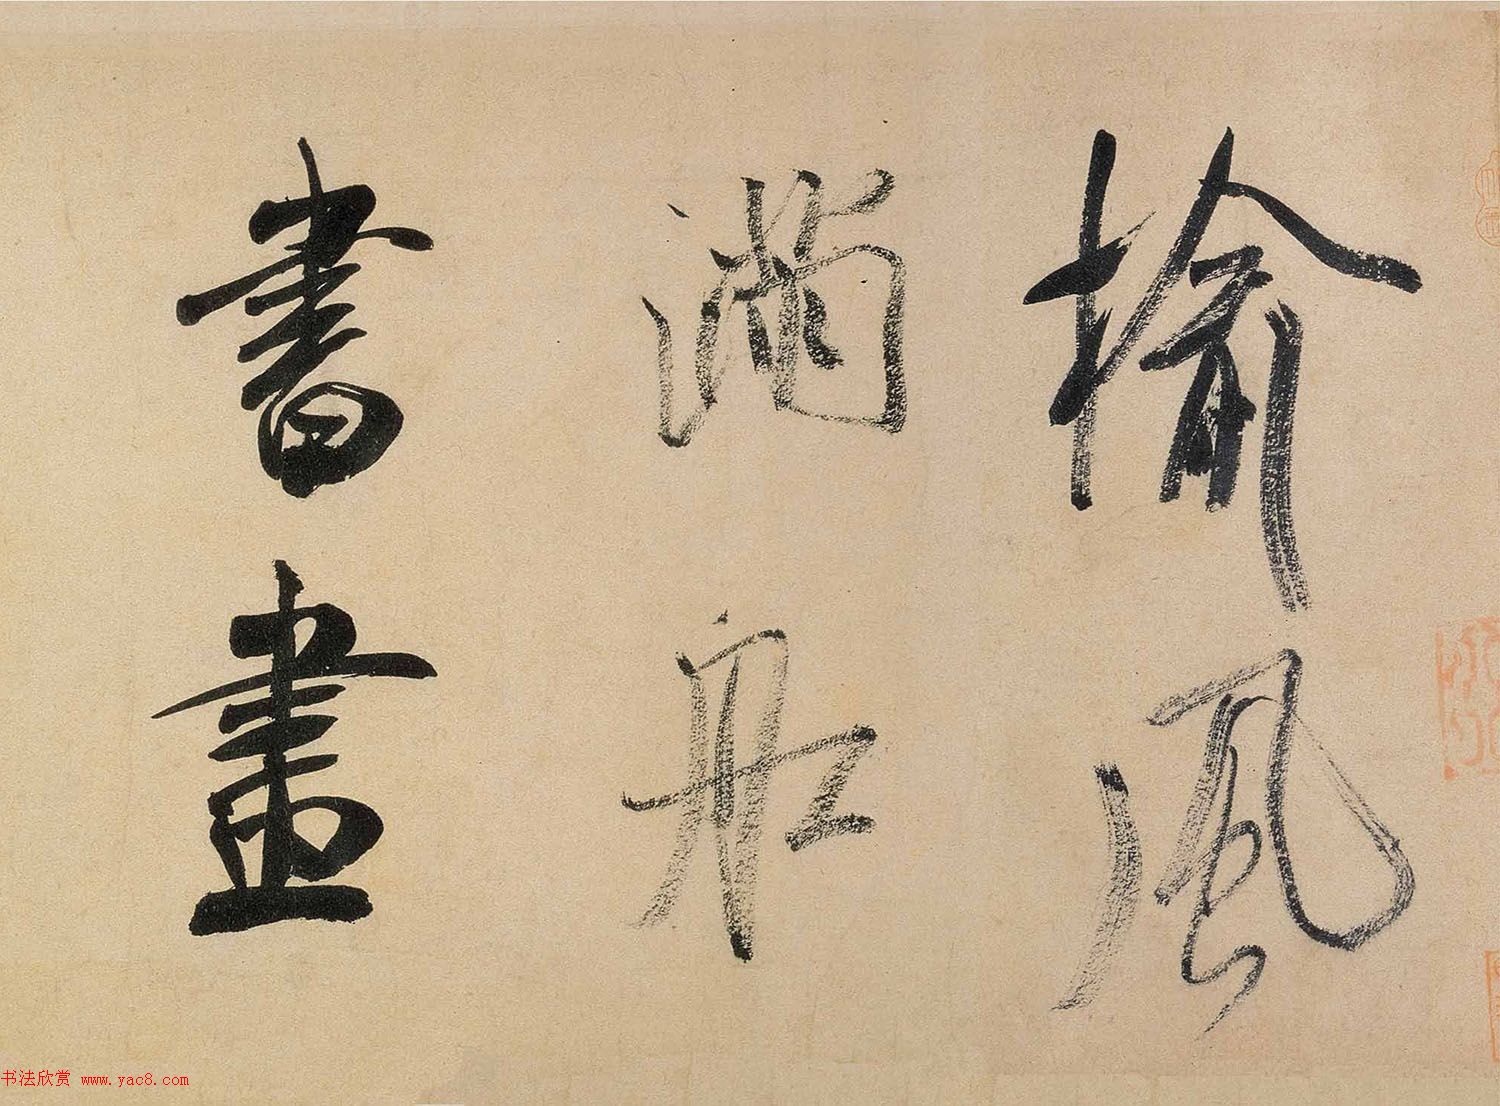 揄風
滿船
書畫
书法欣赏 www.yac8.com